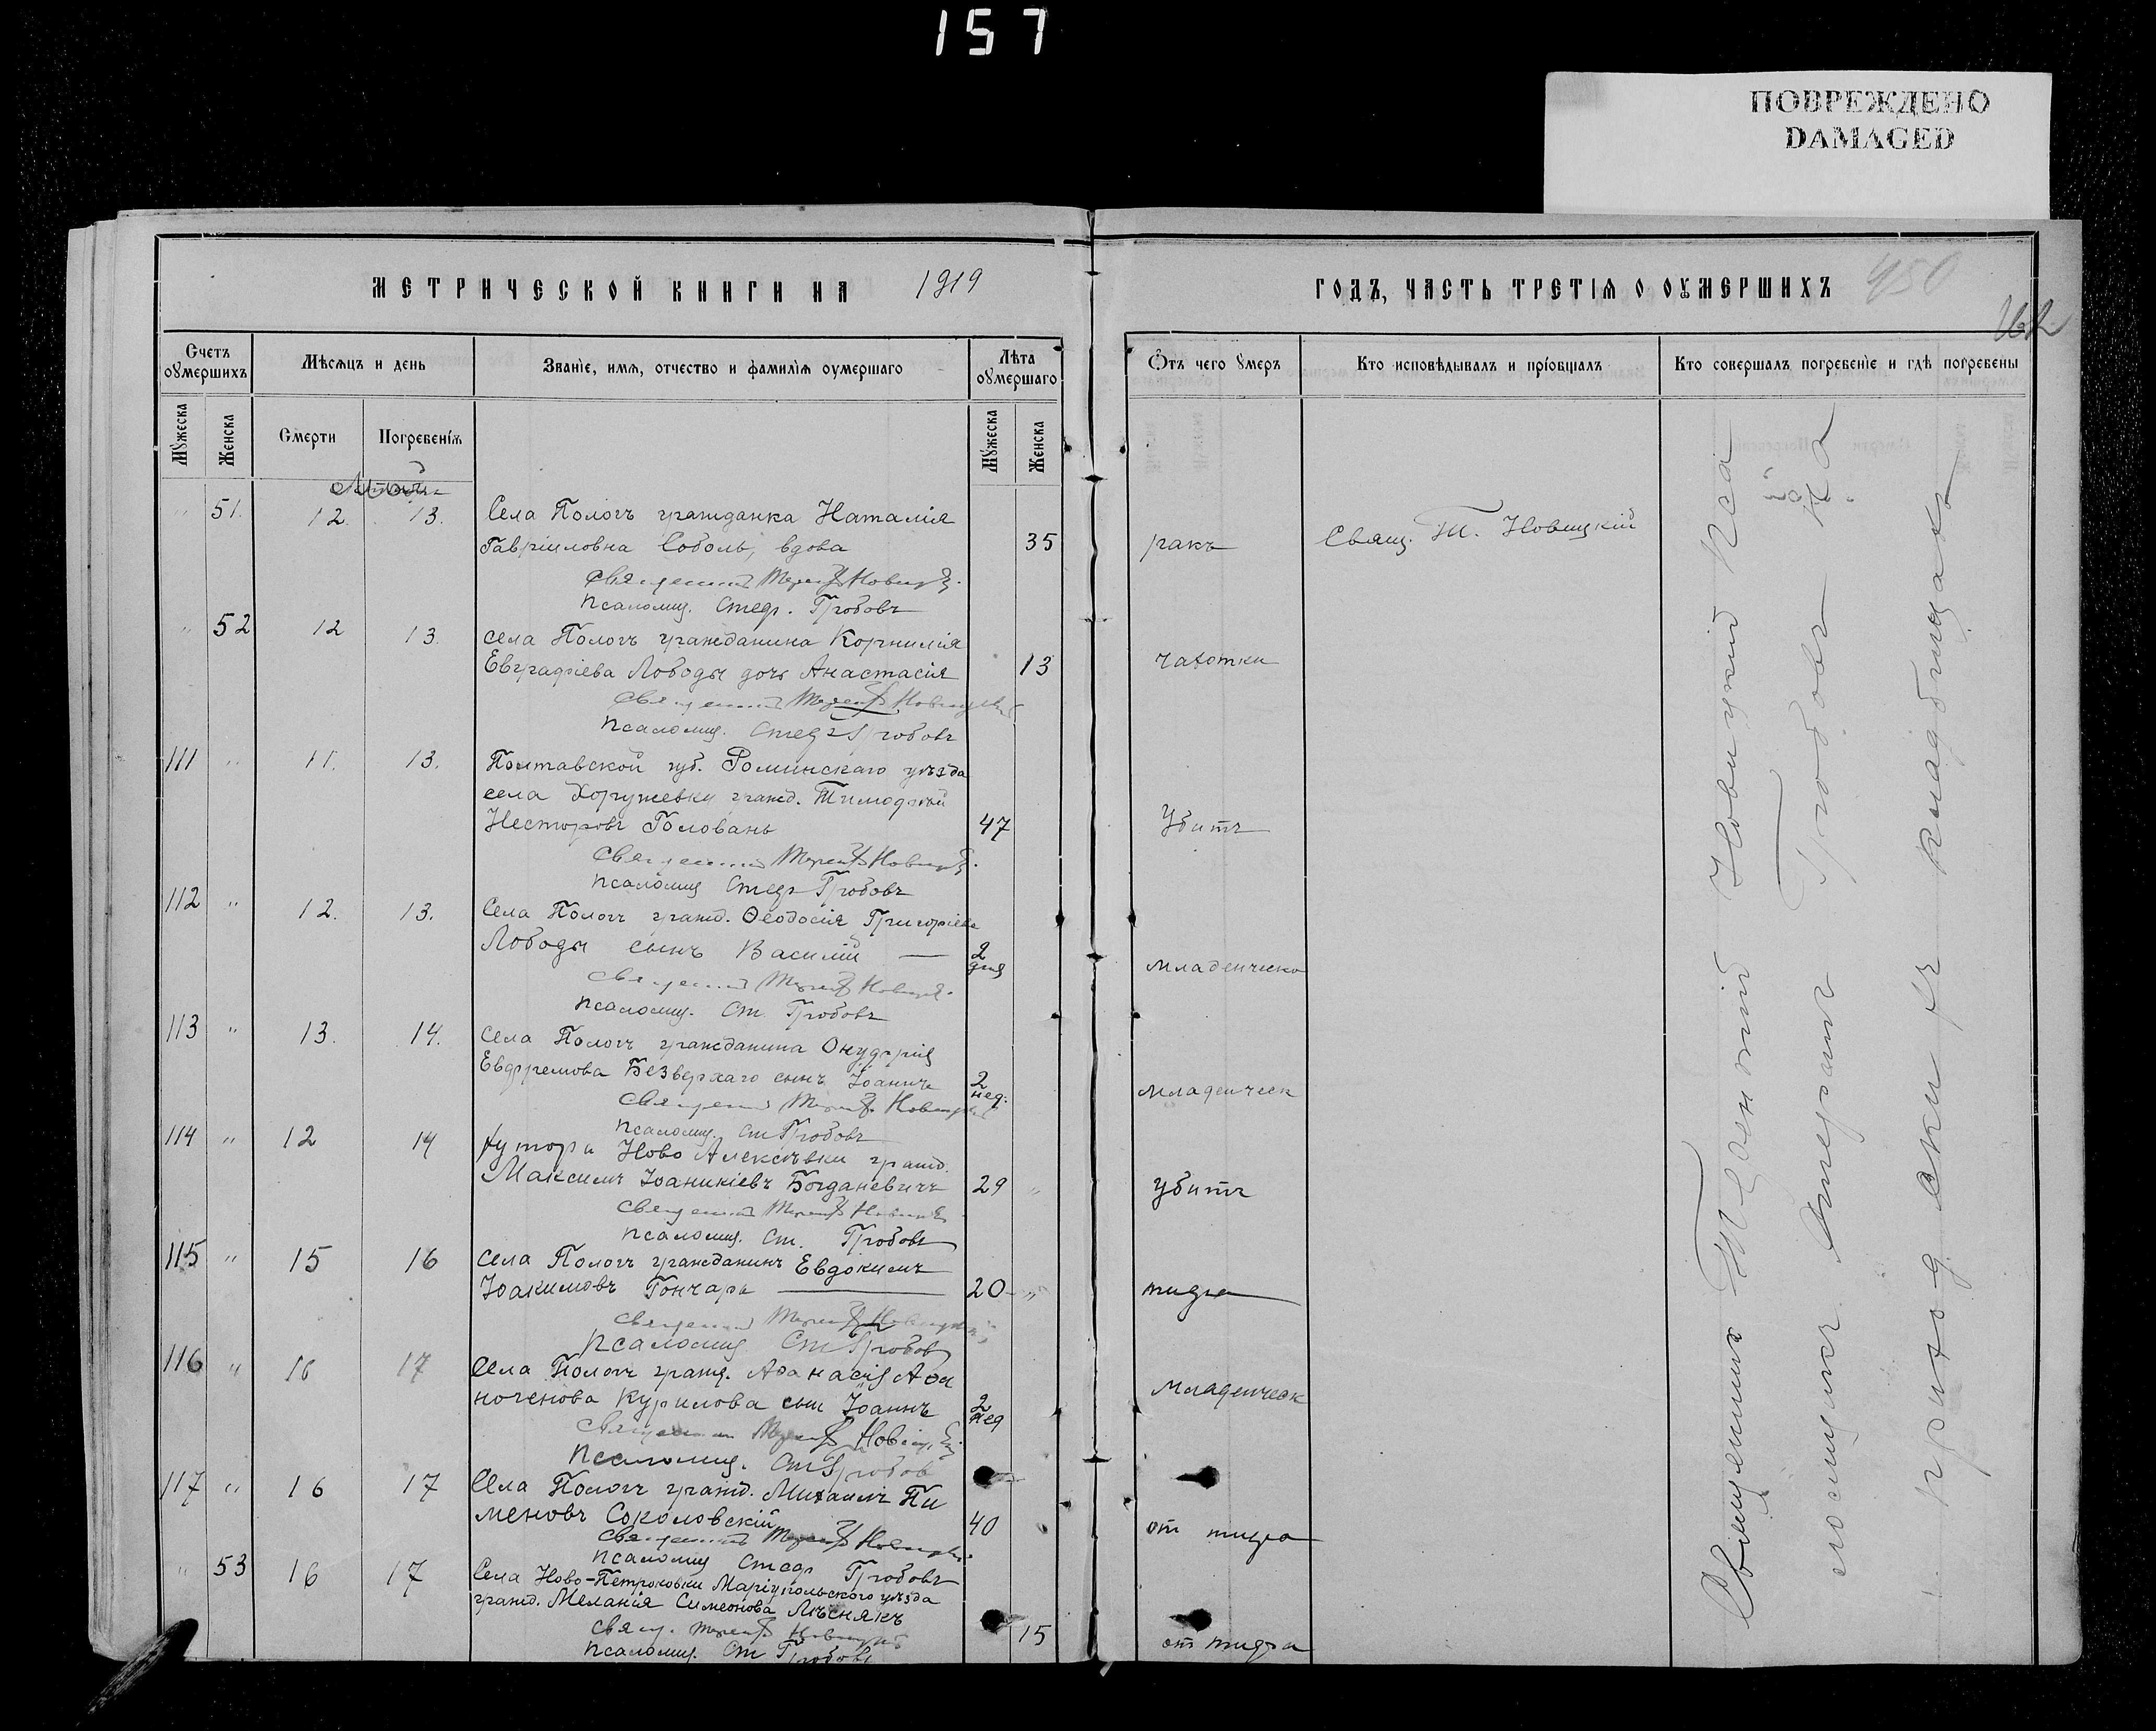 157
ПОВРЕЖДЕНО
DAMAGED
МЕТРИЧЕСКОЙ КНИГИ НА 1919
ГОДЪ, ЧАСТЬ ТРЕТІЯ О ОУМЕРШИХЪ 450
Счетъ оумершихъ
Мѣсяцъ и день
Званіе, имя, отчество и фамилія оумершаго
Лѣта оумершаго
Отъ чего умеръ
Кто исповѣдывалъ и пріобщалъ
Кто совершалъ погребеніе и гдѣ погребены
Мужеска
Женска
Смерти
Погребенія
Мужеска
Женска
" 51. 12. 13. Села Пологъ гражданка Наталія
Гавріиловна Соболь, вдова 35 ракъ Свящ. Т. Новицкій
Священникъ Новицкій
Псаломщ. Стеф. Гробовъ
" 52 12 13. села Пологъ гражданина Корнилія
Евграфіева Лободы дочь Анастасія 13 чахотки
Священникъ Новицкій
Псаломщ. Стеф Гробовъ
111 " 11. 13. Полтавской губ. Роминскаго уѣзда
села Хоружевки гражд. Тимофѣй
Несторовъ Головань 47 Убитъ
Священникъ Новицкій
Псаломщ Стеф Гробовъ
112 " 12. 13. Села Пологъ гражд. Ѳеодосія Григоріева
Лободы сынъ Василій — 2 дня младенческ
Священникъ Новицкій
Псаломщ. Ст Гробовъ
113 " 13. 14. Села Пологъ гражданина Онуфрія
Евфремова Безверхаго сынъ Іоаннъ 2 нед. младенческ
Священникъ Новицкій
Псаломщ. Ст Гробовъ
114 " 12 14 хутора Ново Алексѣвки гражд.
Максимъ Іоанникіевъ Богданевичъ 29 " убитъ
Священникъ Новицкій
Псаломщ. Ст. Гробовъ
115 " 15 16 села Пологъ гражданинъ Евдокимъ
Іоакимовъ Гончаръ — 20 " тифа
Священникъ Новицкій
Псаломщ Ст Гробовъ
116 " 16 17 Села Пологъ гражд. Аѳанасія Аѳа
ногенова Курилова сын Іоаннъ 2 нед младенческ
Священник Новицкій
Псаломщ. Ст Гробов
117 " 16 17 Села Пологъ гражд. Михаилъ Пи
меновъ Соколовскій 40 от тифа
Священникъ Новицкій
Псаломщ Стеф Гробовъ
" 53 16 17 Села Ново-Петриковки Маріупольского уѣзда
гражд. Меланія Симеонова Лѣснякъ
Свящ. Новицкій 15 от тифа
Псаломщ. Ст Гробовъ
Священникъ Новицкій Пса
ломщикъ Стефанъ Гробовъ на
приход ски хъ кладбищахъ